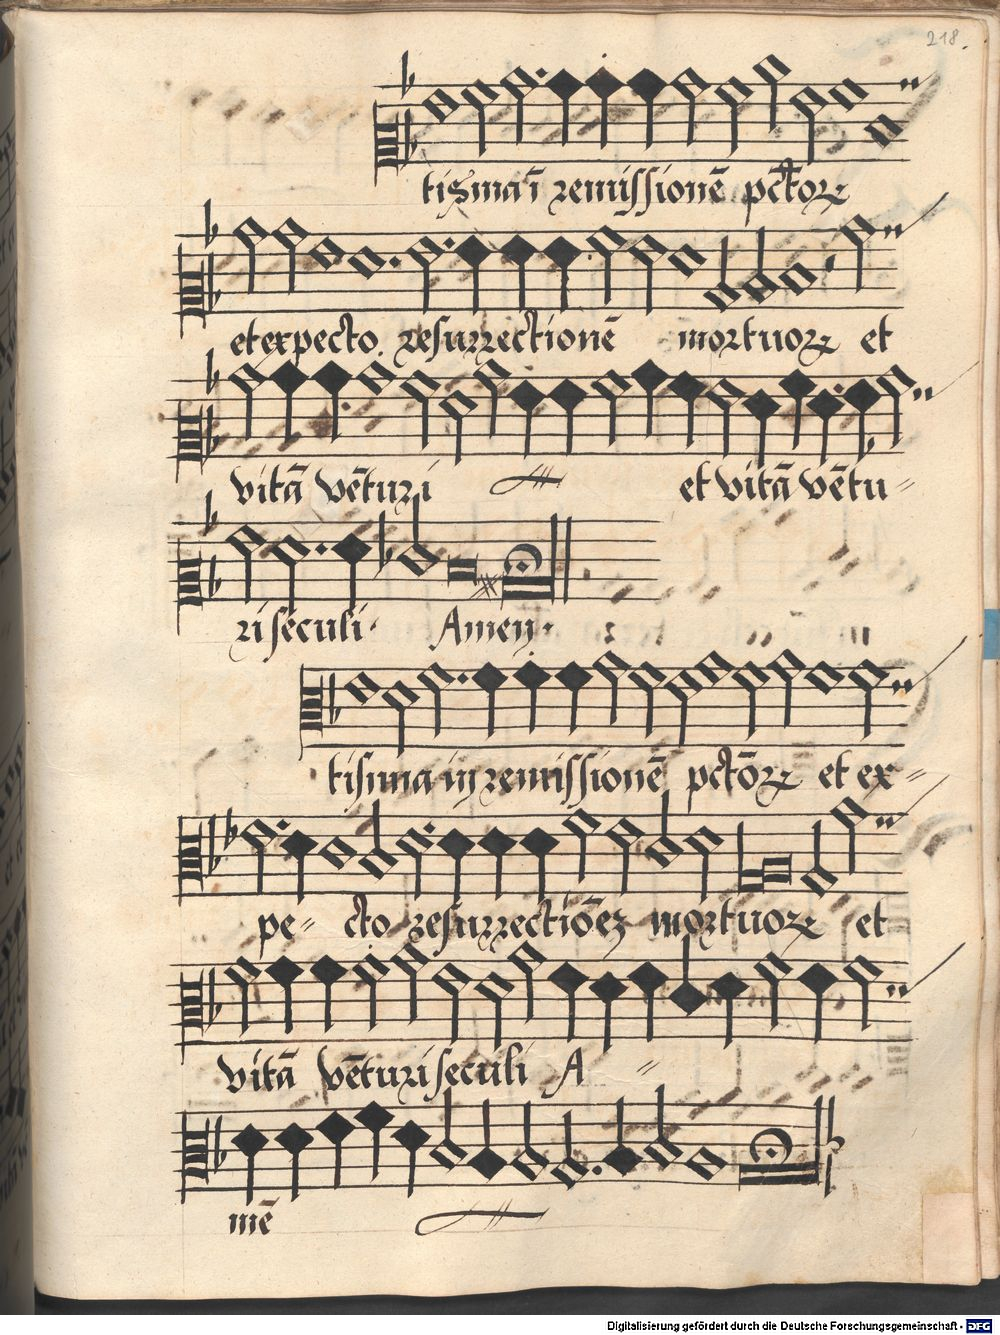 218.
tisma ī remissionē pctorꝝ
et expecto resurrectionē mortuorꝝ et
vitā vēturi et vitā vētu=
ri seculi. Amen.
tisma in remissionē pctōrꝝ et ex=
pe= cto resurrectiōez mortuorꝝ et
vitā vēturi seculi A =
mē
Digitalisierung gefördert durch die Deutsche Forschungsgemeinschaft - DFG